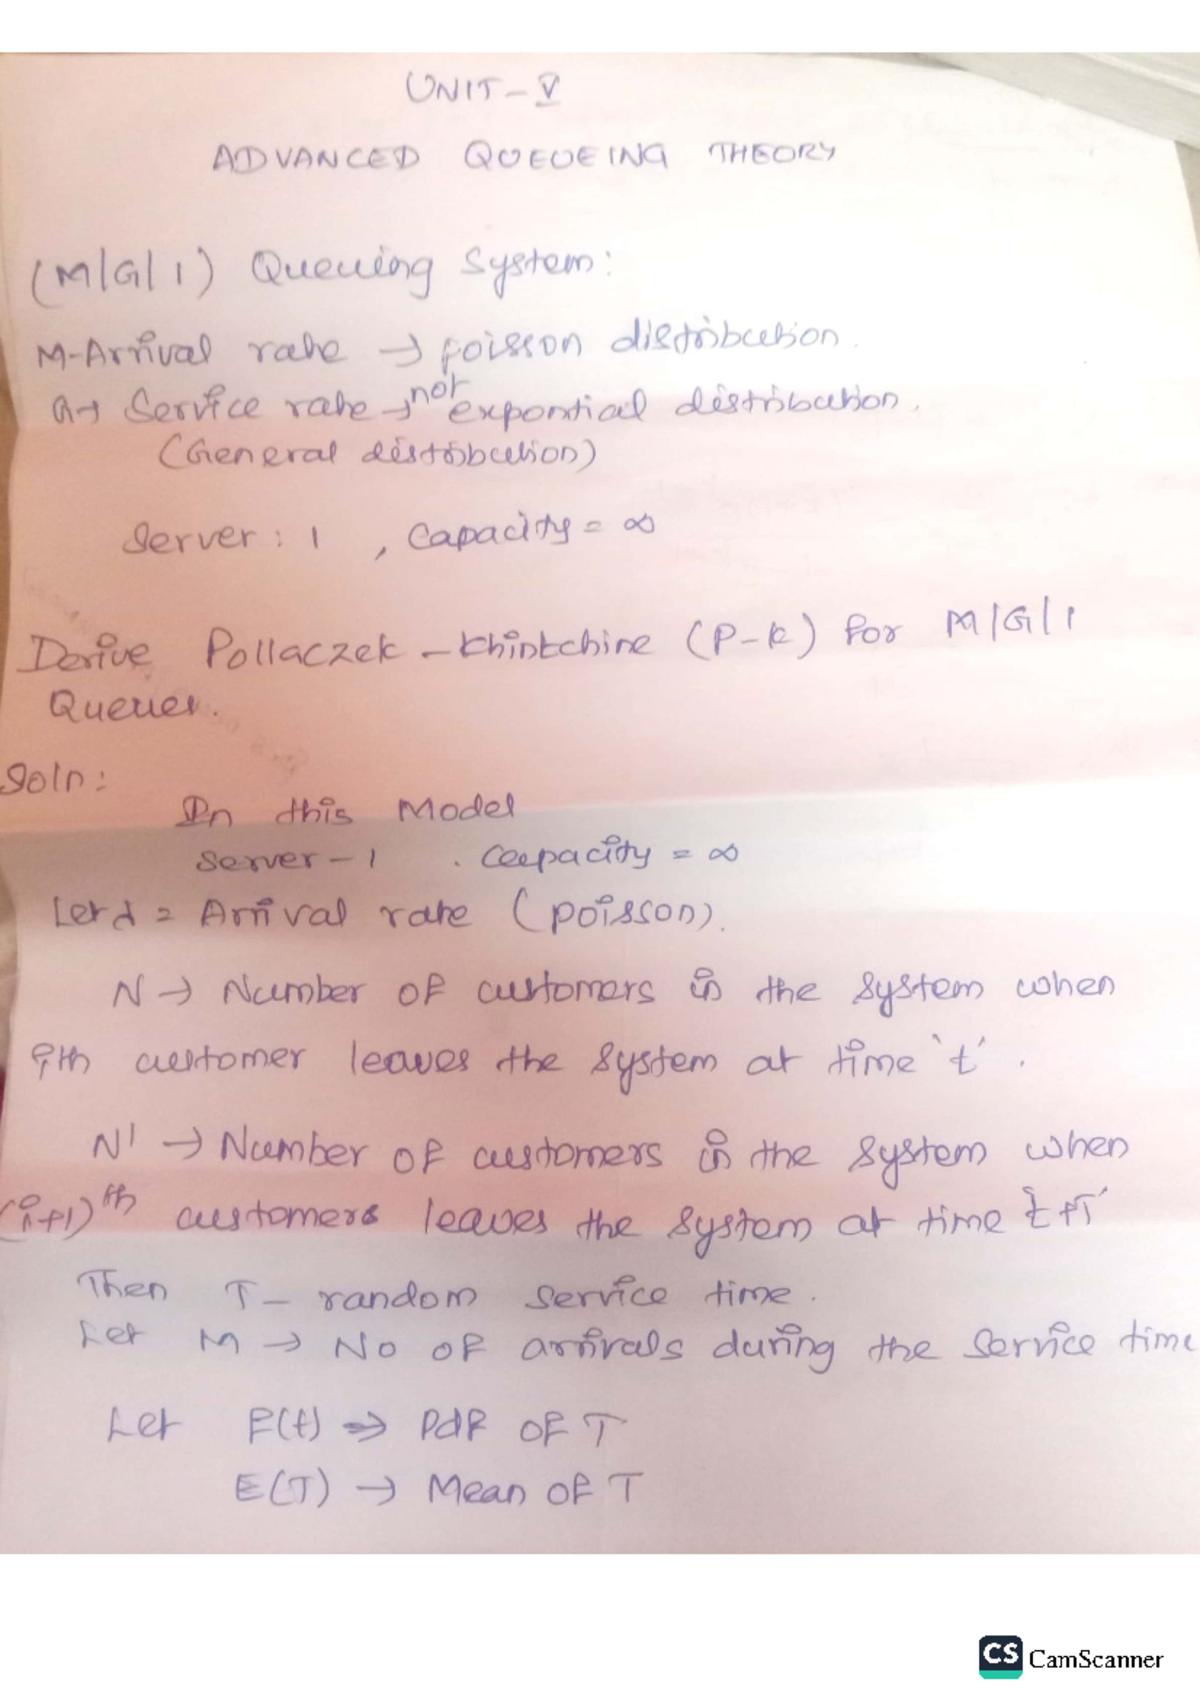 UNIT - V
ADVANCED QUEUEING THEORY
(M|G|1) Queuing System:
M-Arrival rate → poisson distribution.
G → Service rate → not expontial distribution.
(General distribution)
Server : 1 , Capacity = ∞
Derive Pollaczek - Khintchine (P-K) for M|G|1
Queues.
Soln:
In this Model
Server - 1 . Capacity = ∞
Let λ = Arrival rate (poisson).
N → Number of customers in the system when
ith customer leaves the system at time 't'.
N' → Number of customers in the system when
(i+1)th customers leaves the system at time 't+T'
Then T - random service time.
Let M → No of arrivals during the service time
Let f(t) → Pdf of T
E(T) → Mean of T
CS CamScanner